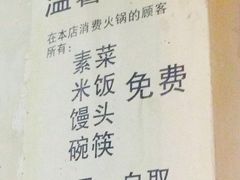 温馨
在本店消费火锅的顾客
所有：
素菜
米饭 免费
馒头
碗筷
自取